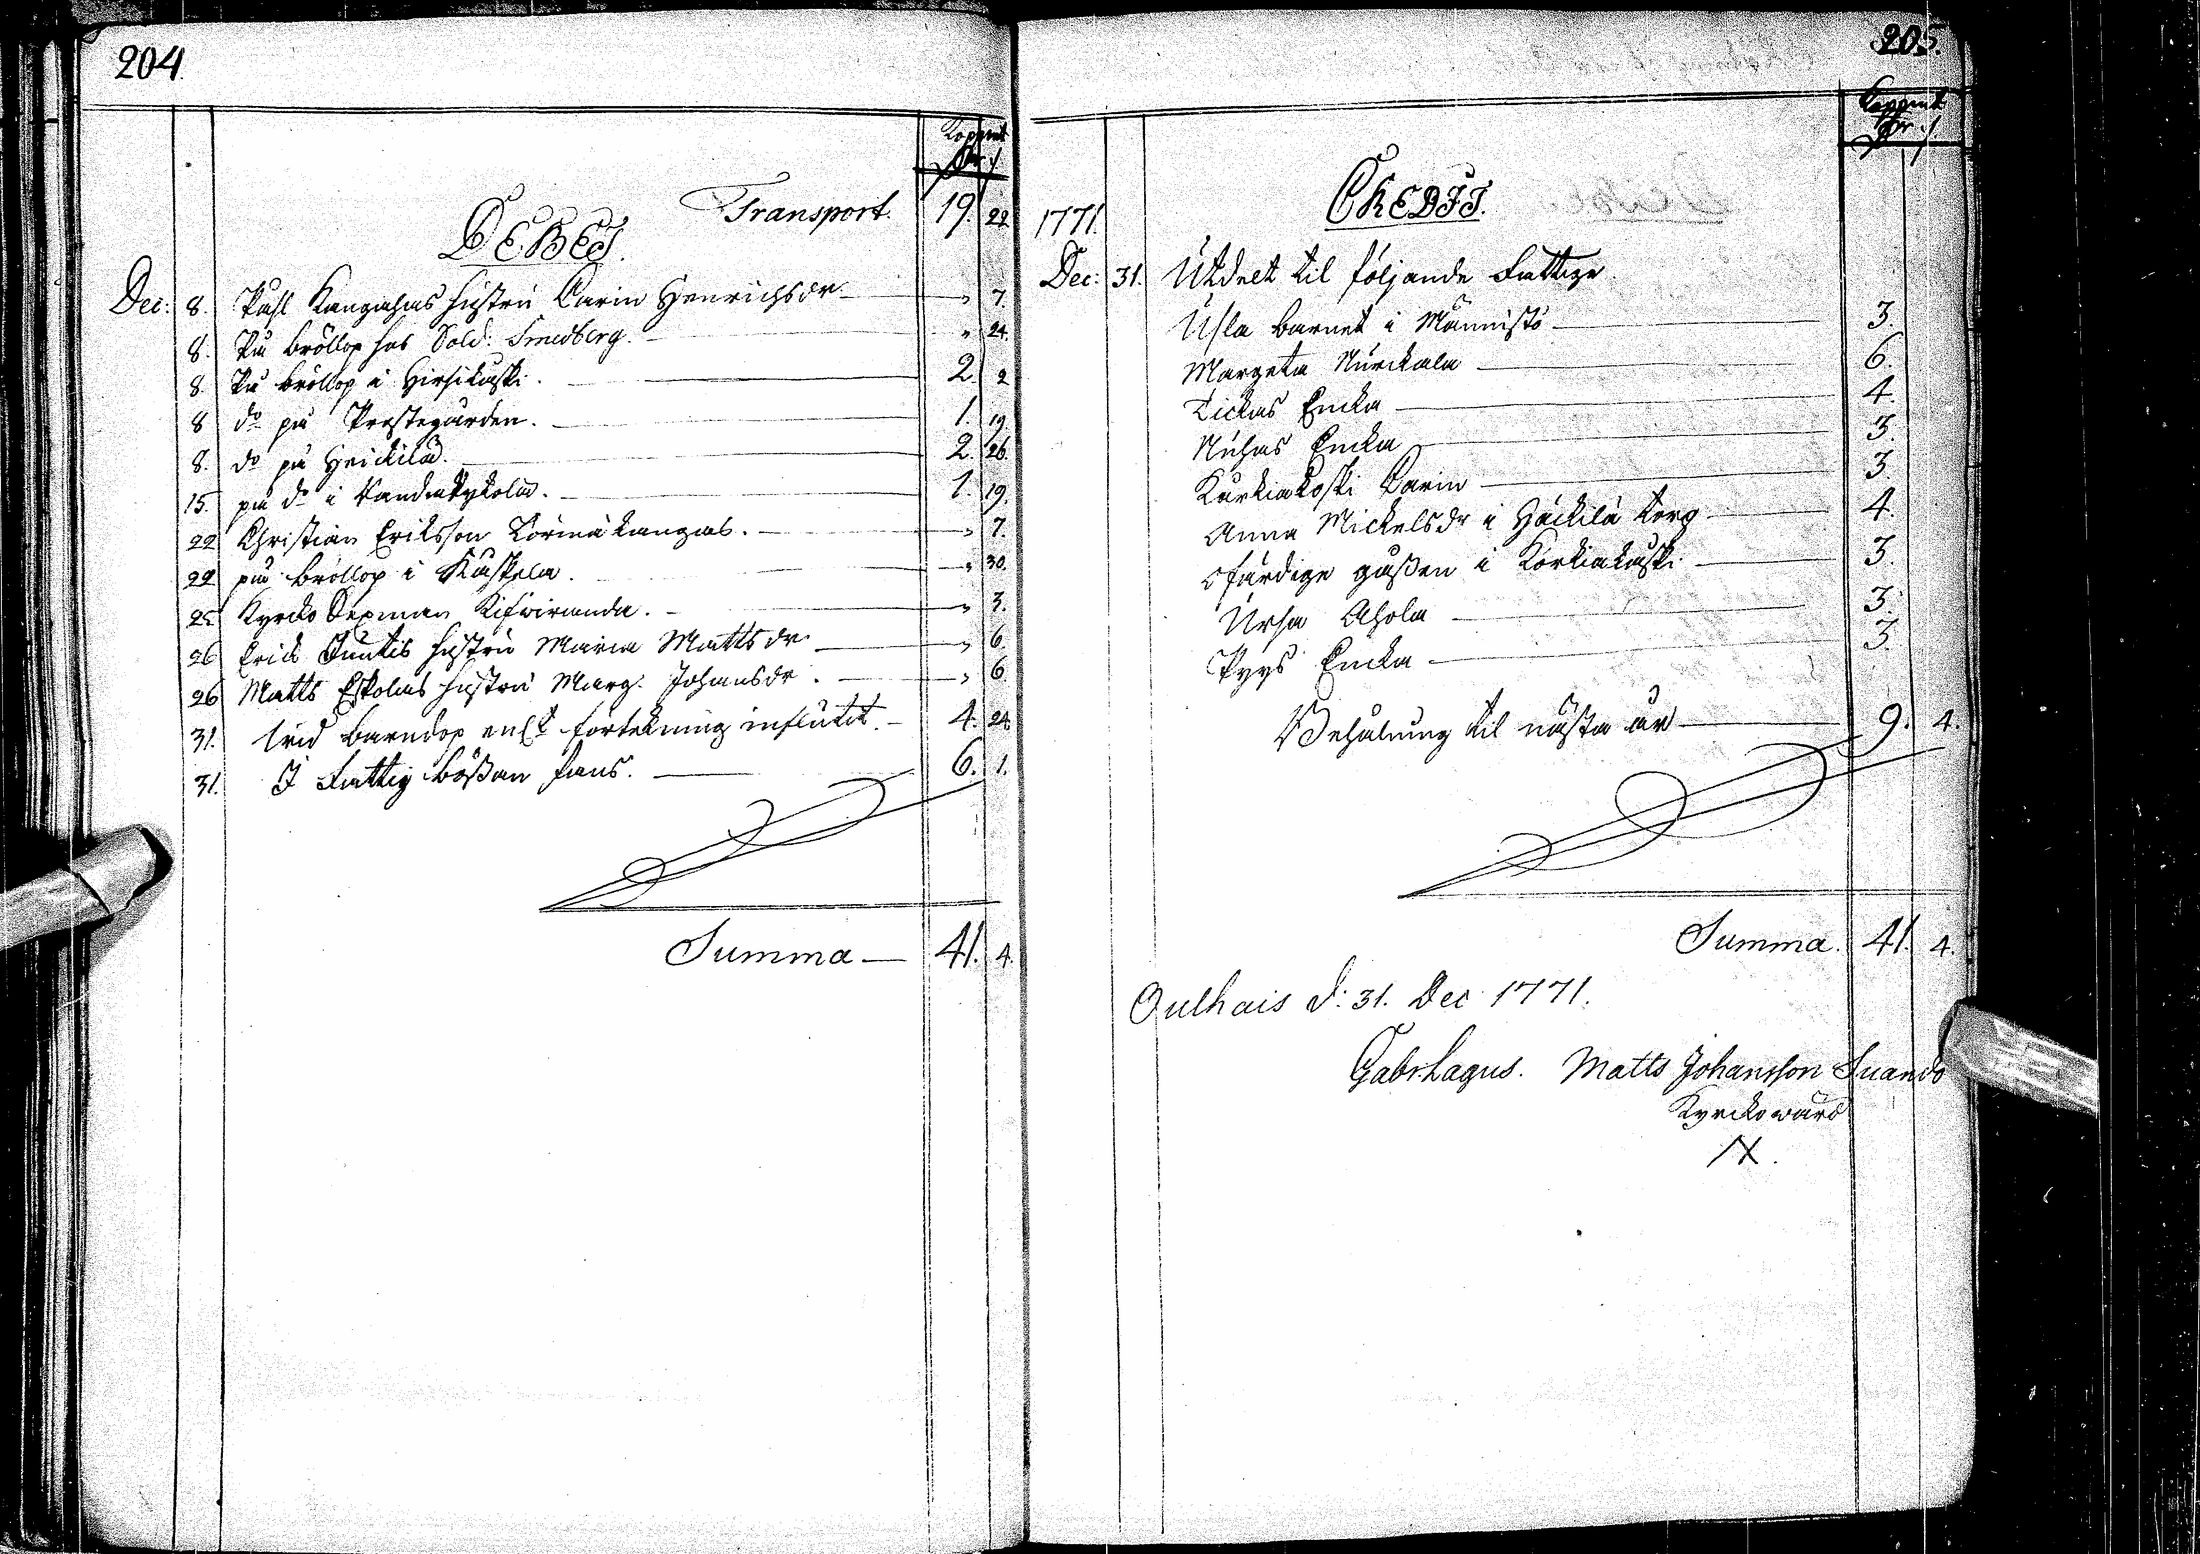 204
Koppmt
Dr. /.
DEBET.
Transport. 19. 22
Dec: 8. Påhl Kangahas hustru Carin Henrichsdr — " 7.
8. På bröllop hos Sold: Smedberg. — " 24.
8. På bröllop i Hirsikaski. — 2. 2
8 do på Prestegården. — 1. 19.
8. do på Heickilä. — 2. 26.
15. på do i — 1. 19.
22 Christian Eriksson Törmäkangas. — " 7.
22 på bröllop i Kaskela. — " 30.
25 Kyrcko — " 3.
26 Erick Juutis hustru Maria Mattsdr — " 6.
26 Matts Eskolas hustru Marg. Johansdr. — " 6
31. wid barndop enl:t förtekning influtit. — 4. 24.
31. I Fattig bößan fans. — 6. 1.
Summa — 41. 4.
205.
Koppmt
Dr. /.
CREDIT.
1771.
Dec: 31. Utdelt til följande Fattige.
Usla barnet i Männistö — 3.
Margeta Nurckala — 6.
Tickas Encka — 4.
Niskas Encka — 3.
Kurkiakoski Carin — 3.
Anna Mickelsdr i Häckilä torp — 4.
Ofärdige gåßen i Korkiakaski — 3.
Ursa Ahola — 3.
Pyys Encka — 3.
Behålning til nästa år — 9. 4.
Summa. 41. 4.
Oulhais d: 31. Dec 1771.
Gabr. Lagus. Matts Johansson Suando
Kyrckowärd